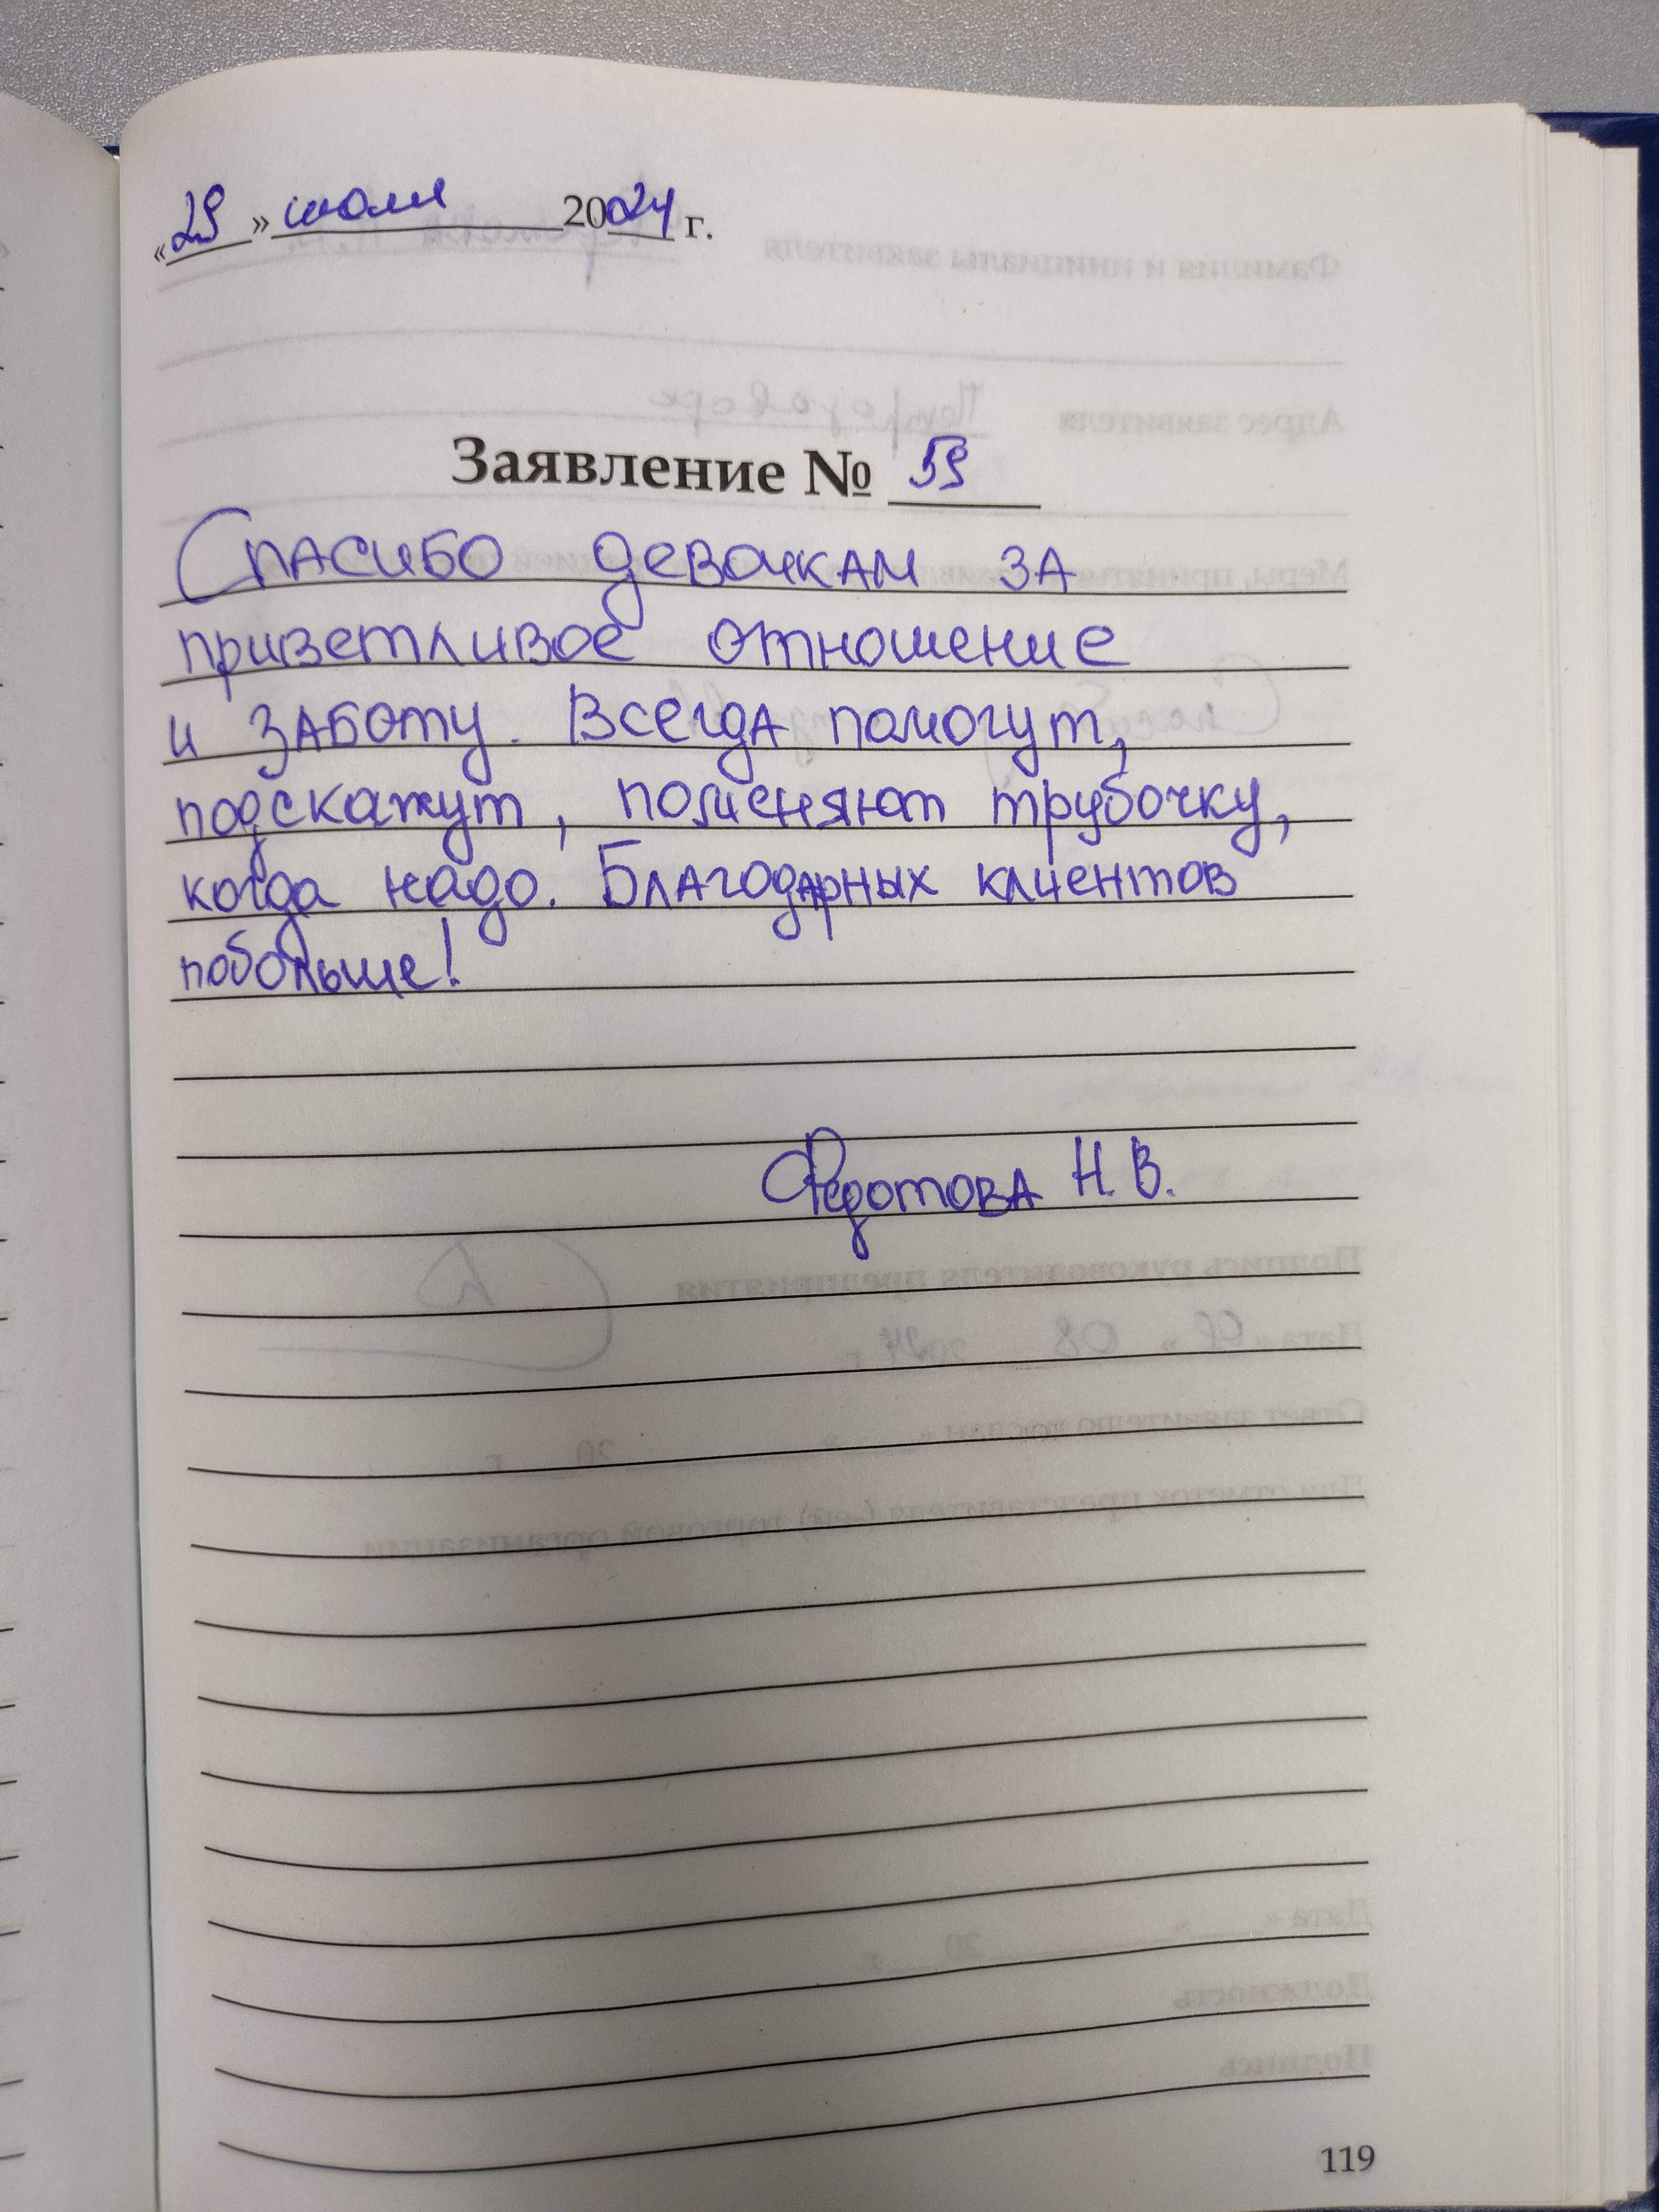 «29» июля 20024 г.
Заявление № 59
Спасибо девочкам за
приветливое отношение
и заботу. Всегда помогут,
подскажут, поменяют трубочку,
когда надо. Благодарных клиентов
побольше!
Федотова Н.В.
119